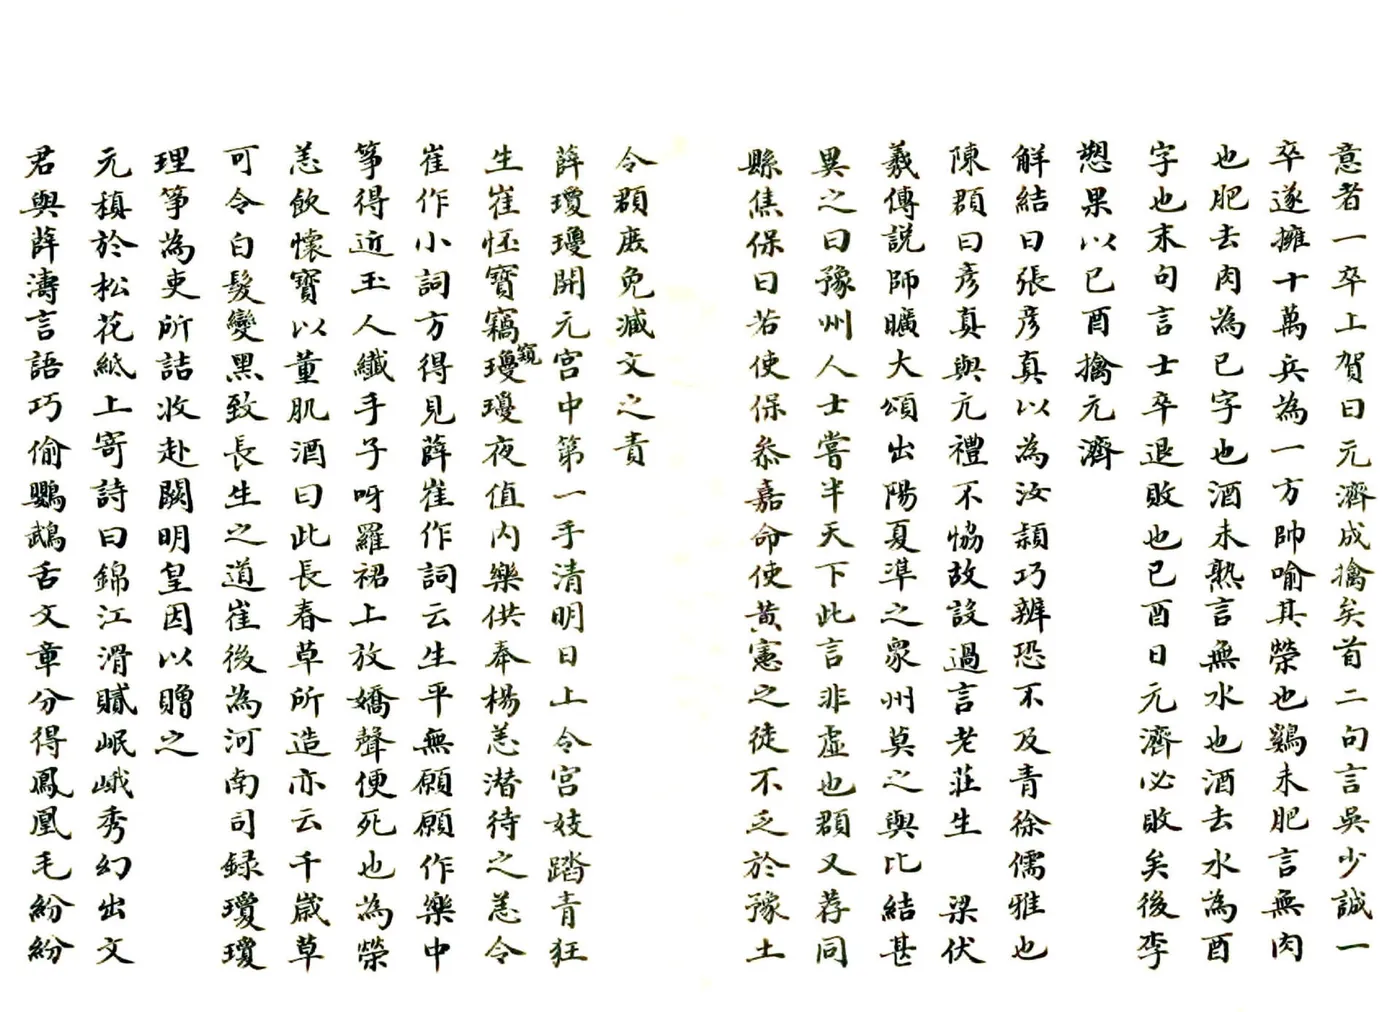 意者一卒上賀曰元濟成擒矣首二句言吳少誠一
卒遂擁十萬兵為一方帥喻其榮也鷄未肥言無肉
也肥去肉為已字也酒未熟言無水也酒去水為酉
字也末句言士卒退敗也已酉日元濟必敗矣後李
愬果以已酉擒元濟
觧結曰張彦真以為汝頴巧辨恐不及青徐儒雅也
陳群曰彦真與元禮不恊故設過言老莊生　梁伏
羲傳説師曠大頌出陽夏凖之衆州莫之與比結甚
異之曰豫州人士嘗半天下此言非虛也群又荐同
縣焦保曰若使保叅嘉命使黄憲之徒不乏於豫土
令群庶免減文之責
薛瓊瓊開元宫中第一手清明日上令宫妓踏青狂
生崔怪寶竊窺瓊瓊夜值内樂供奉楊恙潜待之恙令
崔作小詞方得見薛崔作詞云生平無願願作樂中
筝得近玉人纖手子呀羅裙上放嬌聲便死也為榮
恙飲懷寶以董肌酒曰此長春草所造亦云千歲草
可令白髮變黑致長生之道崔後為河南司録瓊瓊
理筝為吏所詰收赴闕明皇因以贈之
元稹於松花紙上寄詩曰錦江滑膩岷峨秀幻出文
君與薛濤言語巧偷鸚鵡舌文章分得鳳凰毛紛紛